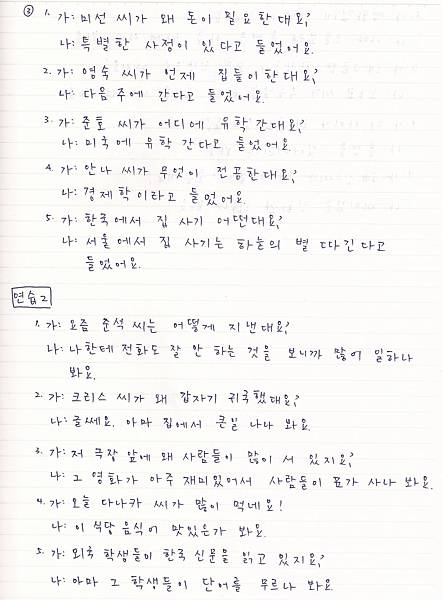 ③ 1. 가: 미선 씨가 왜 돈이 필요한대요?
나: 특별한 사정이 있다고 들었어요.
2. 가: 영숙 씨가 언제 집들이한대요?
나: 다음 주에 간다고 들었어요.
3. 가: 준호 씨가 어디에 유학 간대요?
나: 미국에 유학 간다고 들었어요.
4. 가: 안나 씨가 무엇이 전공한대요?
나: 경제학이라고 들었어요.
5. 가: 한국에서 집 사기 어떤대요?
나: 서울에서 집 사기는 하늘의 별 따긴다고
들었어요.
연습2
1. 가: 요즘 준석 씨는 어떻게 지낸대요?
나: 나한테 전화도 잘 안 하는 것을 보니까 많이 일하나
봐요.
2. 가: 크리스 씨가 왜 갑자기 귀국했대요?
나: 글쎄요. 아마 집에서 큰일 나나 봐요.
3. 가: 저 극장 앞에 왜 사람들이 많이 서 있지요?
나: 그 영화가 아주 재미있어서 사람들이 표가 사나 봐요.
4. 가: 오늘 다나카 씨가 많이 먹네요!
나: 이 식당 음식이 맛있은가 봐요.
5. 가: 외국 학생들이 한국 신문을 읽고 있지요?
나: 아마 그 학생들이 단어를 무르나 봐요.